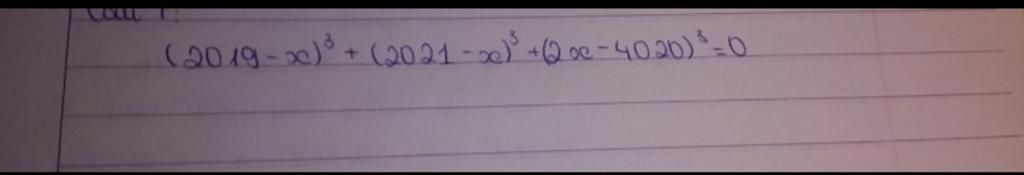 (2019-x)³ + (2021-x)³ + (2x-4020)³=0